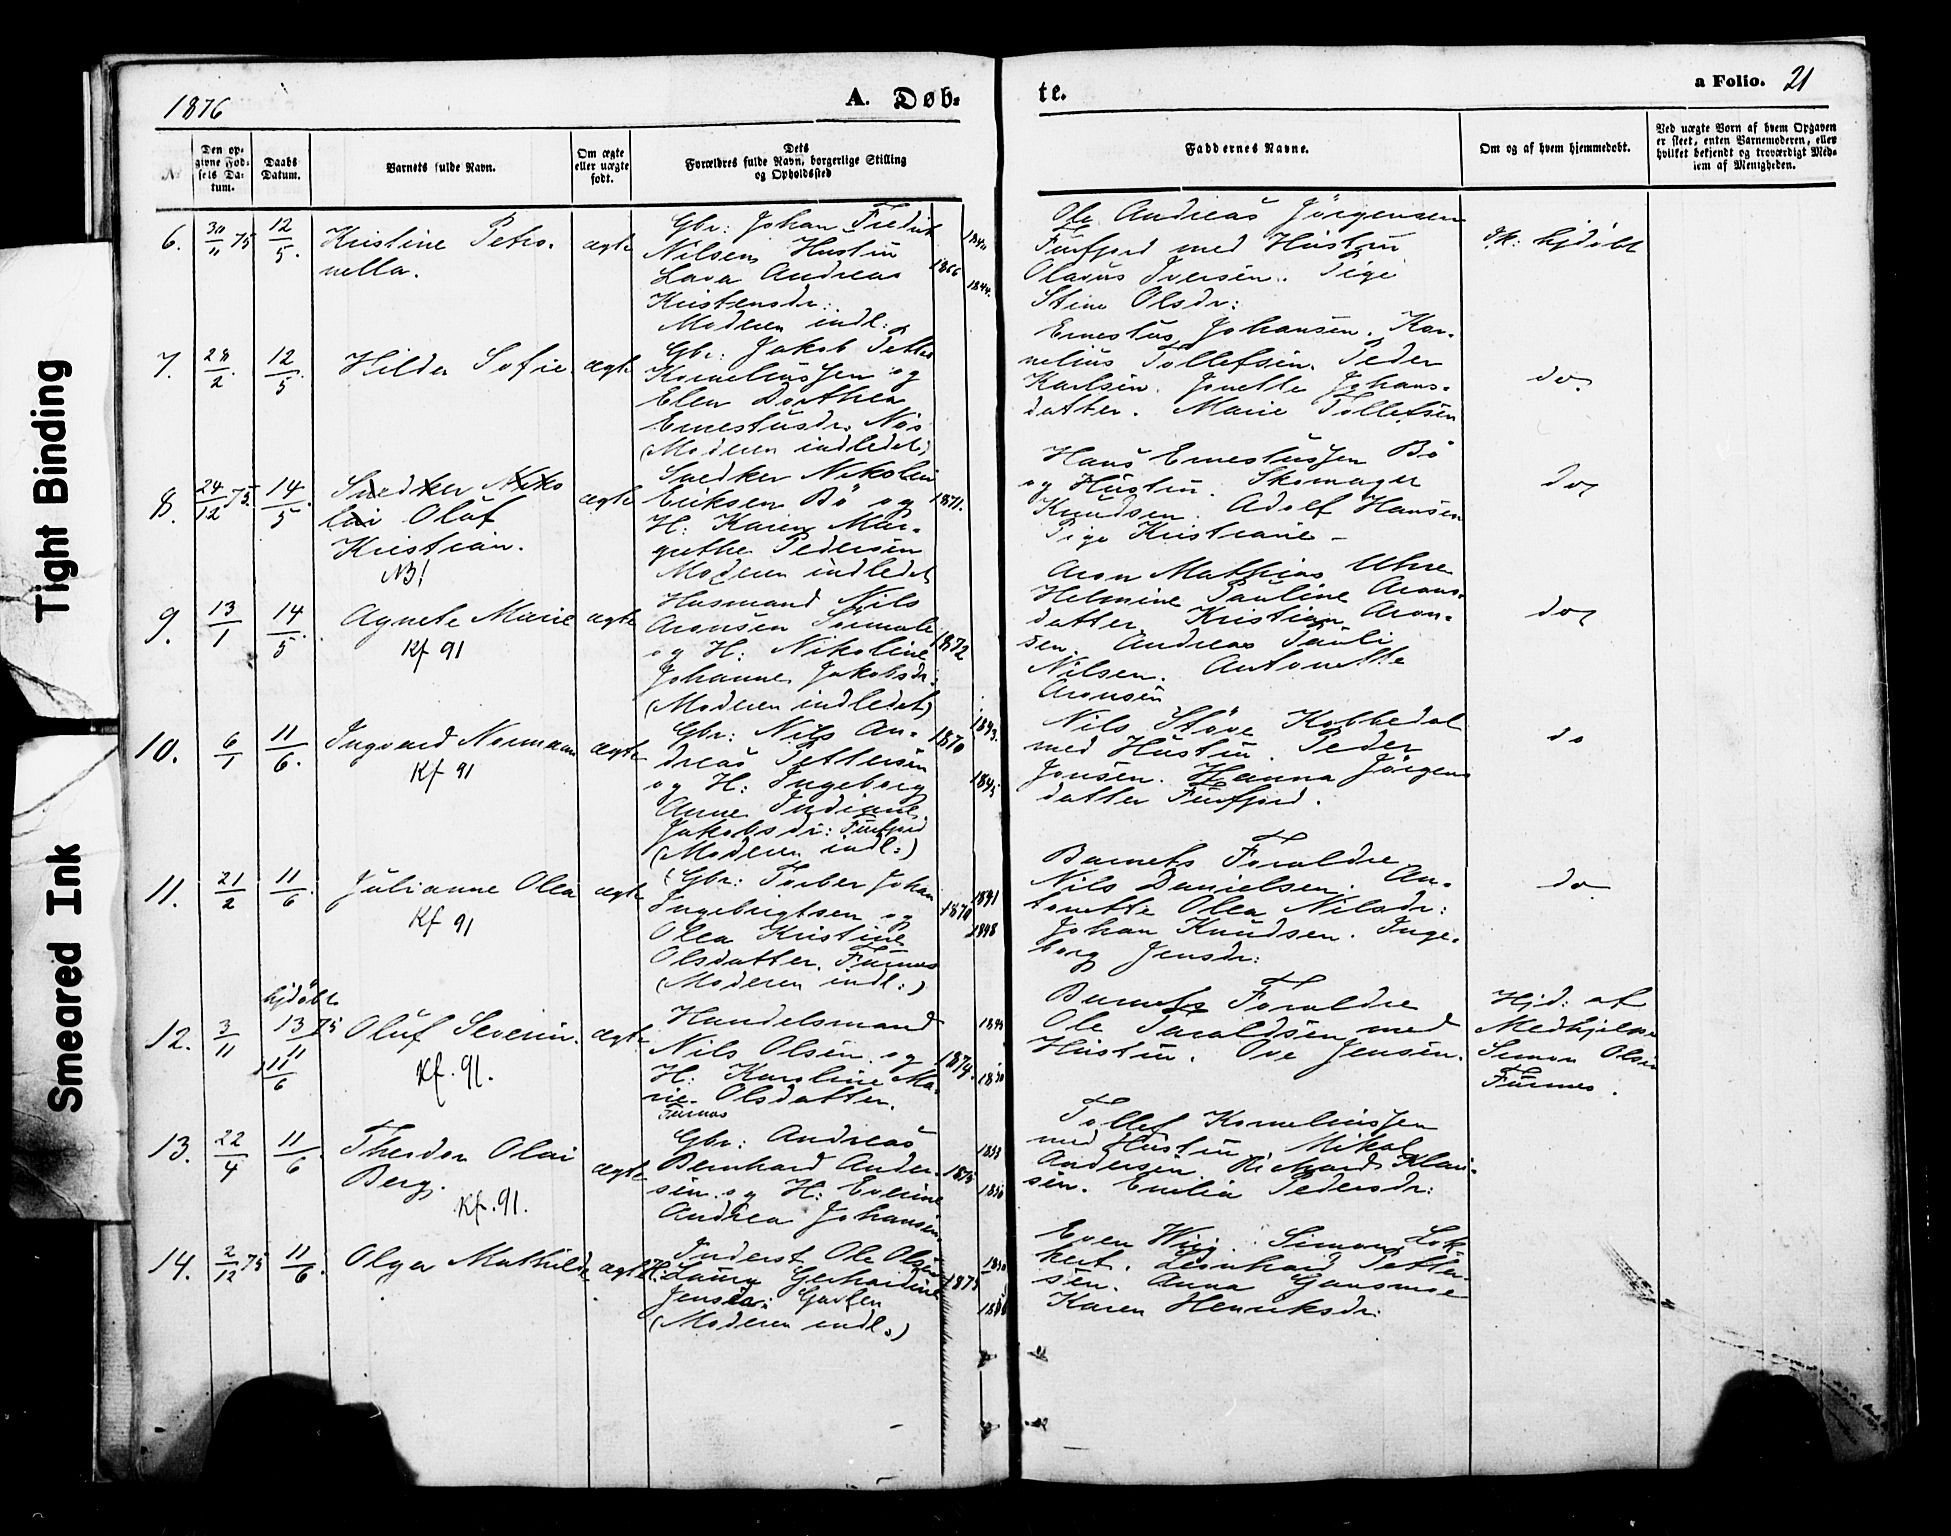 Tight Binding
Smeared Ink
1876
A. Døb-
te.
a Folio. 21
Den op-
givne Fød-
sels Da-
tum.
Daabs
Datum.
Barnets fulde Navn.
Om ægte
eller uægte
født.
Dets
Forældres fulde Navn, borgerlige Stilling
og Opholdssted
Faddernes Navne.
Om og af hvem hjemmedøbt.
Ved uægte Børn af hvem Opgaven
er skeet, enten Barnemoderen, eller
hvilket bekjendt og troværdigt Med-
lem af Menigheden.
6. 30/11 75 12/5. Kristine Petro-
nella.
ægte
Gbr: Johan Fredrik
Nilsen Hustru
Lava Andrea
Kristensdr:
Moderen indl:
1866
1844.
Ole Andreas Jörgensen
Furfjord med Hustru
Olavus Iversen. Pige
Stine Olsdr:
ik: hjdöbt
7. 28/2. 12/5. Hilda Sofie. ægte
Gbr: Jakob Petter
Korneliussen og
Elen Dorthea
Ernestusdr. Nös
(Moderen indledet)
Ernestus Johansen. Kor-
nelius Tollefsen. Peder
Karlsen. Jonette Johans-
datter. Marie Tollefsen
do.
8. 24/12 75. 14/5. Sivedker Niko
lai Oluf
Kristian.
NB!
ægte
Nikolai
Eriksen Bö og
H: Karen Mar-
grethe Pedersen
Moderen indledet
1871.
Hans Ernestussen Bö
og Hustru. Skomager
Knudsen. Adolf Hansen
Pige Kristiane -
do
9. 13/1 14/5. Agnete Marie
Kf 91
ægte
Husmand Nils
Aronsen
og H: Nikoline
Johanne Jakobsdr:
(Moderen indledet)
1872
Aron Mathias Uhre
Helmine Pauline Arons-
datter Kristian Aron-
sen. Andreas Pauli
Nilsen. Antonette
Aronsen
do
10. 6/1 11/6. Ingvard Normann
Kf 91
ægte
Gbr: Nils An-
dreas Pettersen
og H: Ingeborg
Anne Indiane
Jakobsdr: Furfjord
(Moderen indl:)
1870
1843.
1845
Nils Stöve Kobbedal
med Hustru. Peder
Jonsen. Hanna Jörgens
datter Furfjord.
do
11. 21/2 11/6. Julianne Olea
Kf 91
ægte
(Gbr: Torber Johan
Ingebrigtsen og
Olea Kristine
Olsdatter. Furnes
(Moderen indl:)
1870
1841
1848
Barnets Foraldre
Nils Danielsen. An-
tonette Olea Nilsdr:
Johan Knudsen. Inge-
borg Jensdr:
do
12. 3/11 hjdöbt 13/11 75
11/6
Oluf Severin.
Kf. 91.
ægte
Handelsmand
Nils Olsen og
H: Karoline Ma-
rie Olsdatter.
Furnes
1874.
1850
Barnets Foraldre
Ole Taraldsen med
Hustru. Ove Jensen.
Hjd: af
Medhjelper
Simon Olsen
Furnes.
13. 22/4 11/6 Theodor Olai
Berg.
Kf. 91.
ægte
Gbr: Andreas
Bernhard Ander-
sen og H: Eveline
Andrea Johansen.
1875
1853
1850
Tollef Korneliussen
med Hustru Mikal
Andersen. Richard Klau-
sen. Emelia Pedersdr:
14. 2/12 75 11/6. Olga Mathilde ægte
Inderst Ole Olsen
H: Laura Gerhardine
Jensdr: Gavlen
(Moderen indl:)
1875
1850
Even Wig. Simon Lok-
kert. Leonhard Petter-
sen. Anna Gansmoe
Karen Henriksdr: